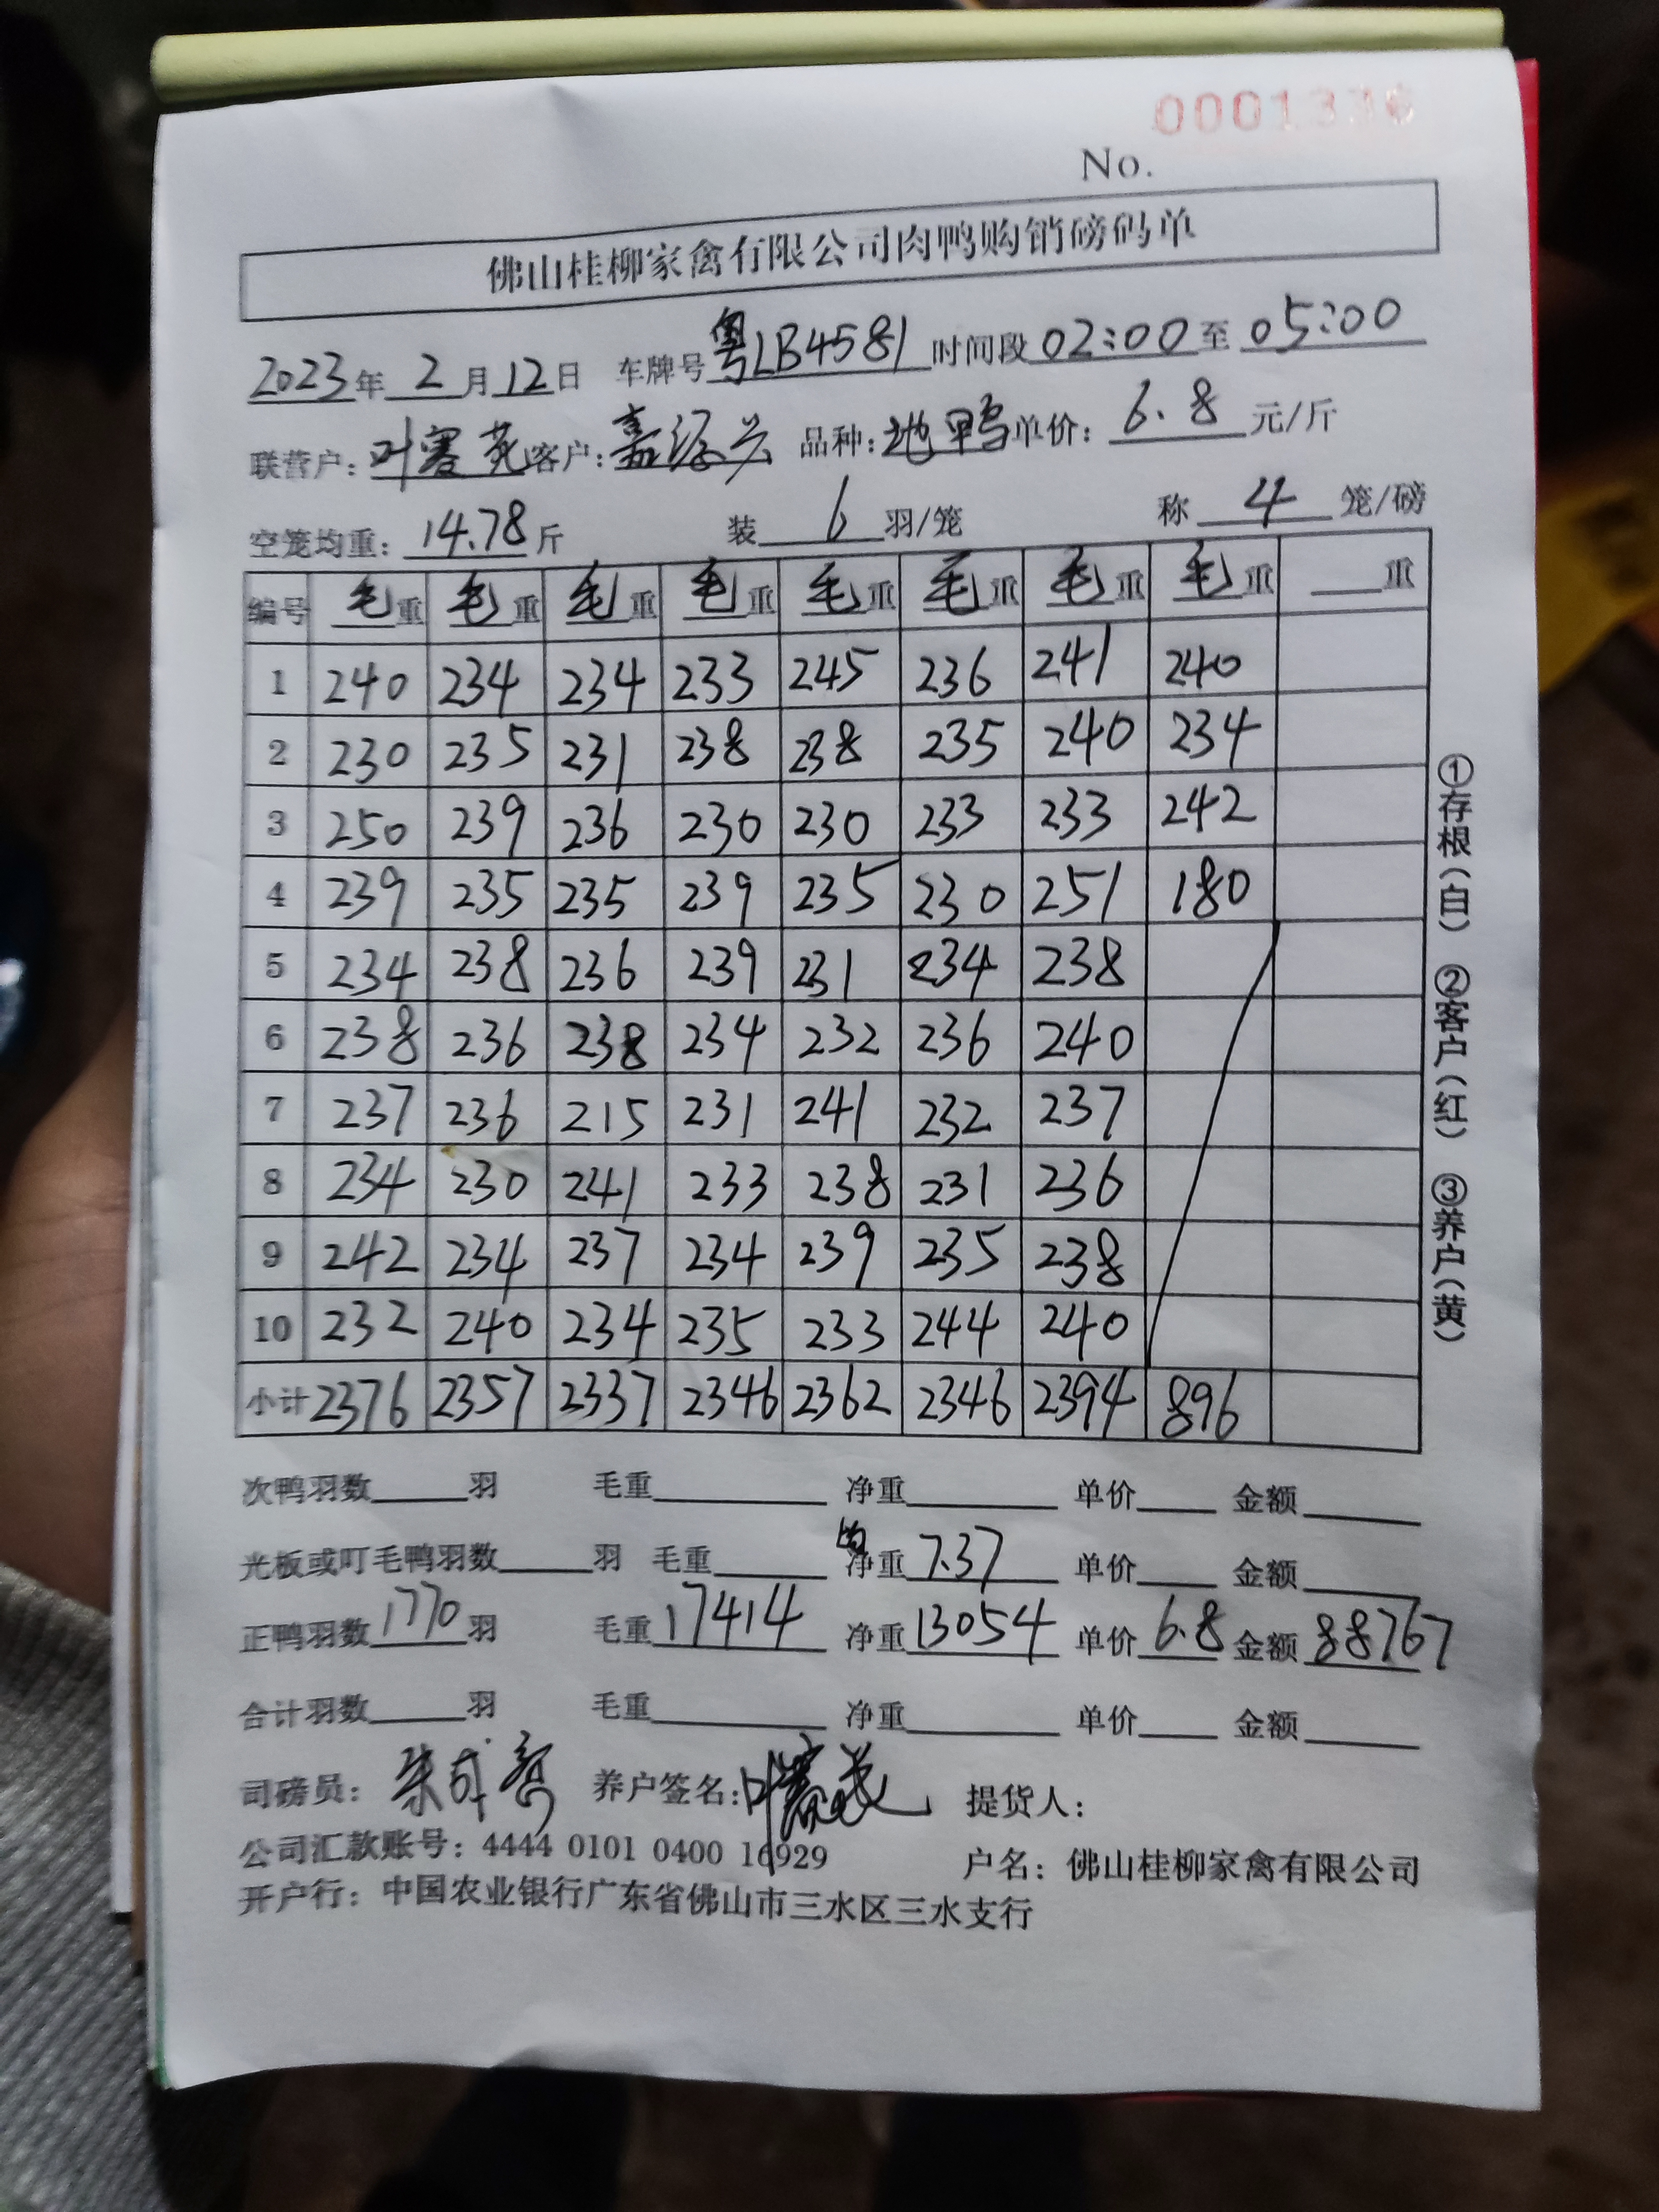 0001336
No.
佛山桂柳家禽有限公司肉鸭购销磅码单
2023年 2 月 12 日 车牌号 粤LB4581 时间段 02:00 至 05:00
联营户: 叶赛 客户: 嘉源兴 品种: 地鸭 单价: 6.8 元/斤
空笼均重: 14.78 斤 装 6 羽/笼 称 4 笼/磅
编号 毛重 毛重 毛重 毛重 毛重 毛重 毛重 毛重 ___重
1 240 234 234 233 245 236 241 240
2 230 235 231 238 238 235 240 234
3 250 239 236 230 230 233 233 242
4 239 235 235 239 235 230 251 180
5 234 238 236 239 231 234 238
6 238 236 238 234 232 236 240
7 237 236 215 231 241 232 237
8 234 230 241 233 238 231 236
9 242 234 237 234 239 235 238
10 232 240 234 235 233 244 240
小计 2376 2357 2337 2346 2362 2346 2394 896
次鸭羽数___羽 毛重___ 净重___ 单价___ 金额___
光板或叮毛鸭羽数___羽 毛重___ 均净重 7.37 单价___ 金额___
正鸭羽数 1770 羽 毛重 17414 净重 13054 单价 6.8 金额 88767
合计羽数___羽 毛重___ 净重___ 单价___ 金额___
司磅员: 养户签名: 提货人:
公司汇款账号: 4444 0101 0400 16929 户名: 佛山桂柳家禽有限公司
开户行: 中国农业银行广东省佛山市三水区三水支行
①存根(白) ②客户(红) ③养户(黄)